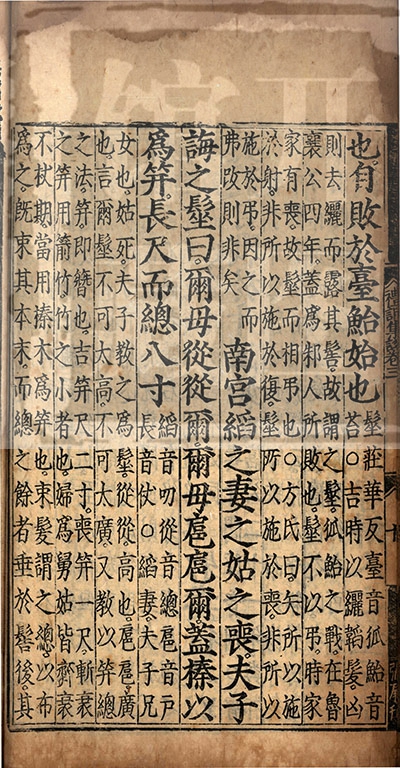 也自敗於臺鮐始也
髽莊華反臺音狐鮐音
苔○吉時以纚韜髮凶
則去纚而露其髻故謂之髽狐鮐之戰在魯
襄公四年蓋爲邾人所敗也髽不以弔時家
家有喪故髽而相弔也○方氏曰矢所以施
於射非所以施於復髽所以施於喪非所以
施於弔因之而
弗改則非矣
南宮縚之妻之姑之喪夫子
誨之髽曰爾毋從從爾爾毋扈扈爾蓋榛以
爲笄長尺而總八寸
縚音叨從音總扈音戶
長音仗○縚妻夫子兄
女也姑死夫子教之爲髽從從高也扈扈廣
也言爾髽不可太高不可太廣又教以笄總
之法笄即簪也吉笄尺二寸喪笄一尺斬衰
之笄用箭竹竹之小者也婦爲舅姑皆齊衰
不杖期當用榛木爲笄也束髮謂之總以布
爲之旣束其本末而總之餘者垂於髻後其